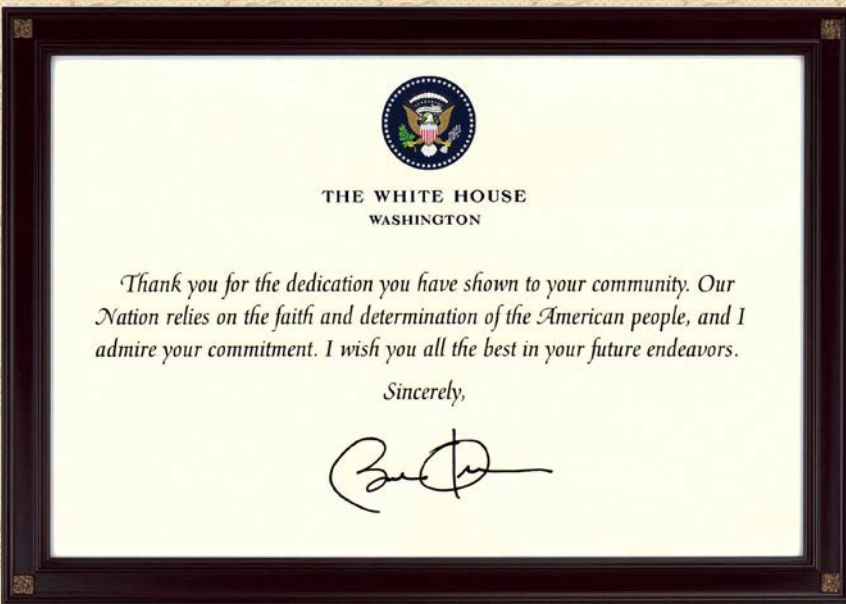 THE WHITE HOUSE
WASHINGTON
Thank you for the dedication you have shown to your community. Our
Nation relies on the faith and determination of the American people, and I
admire your commitment. I wish you all the best in your future endeavors.
Sincerely,